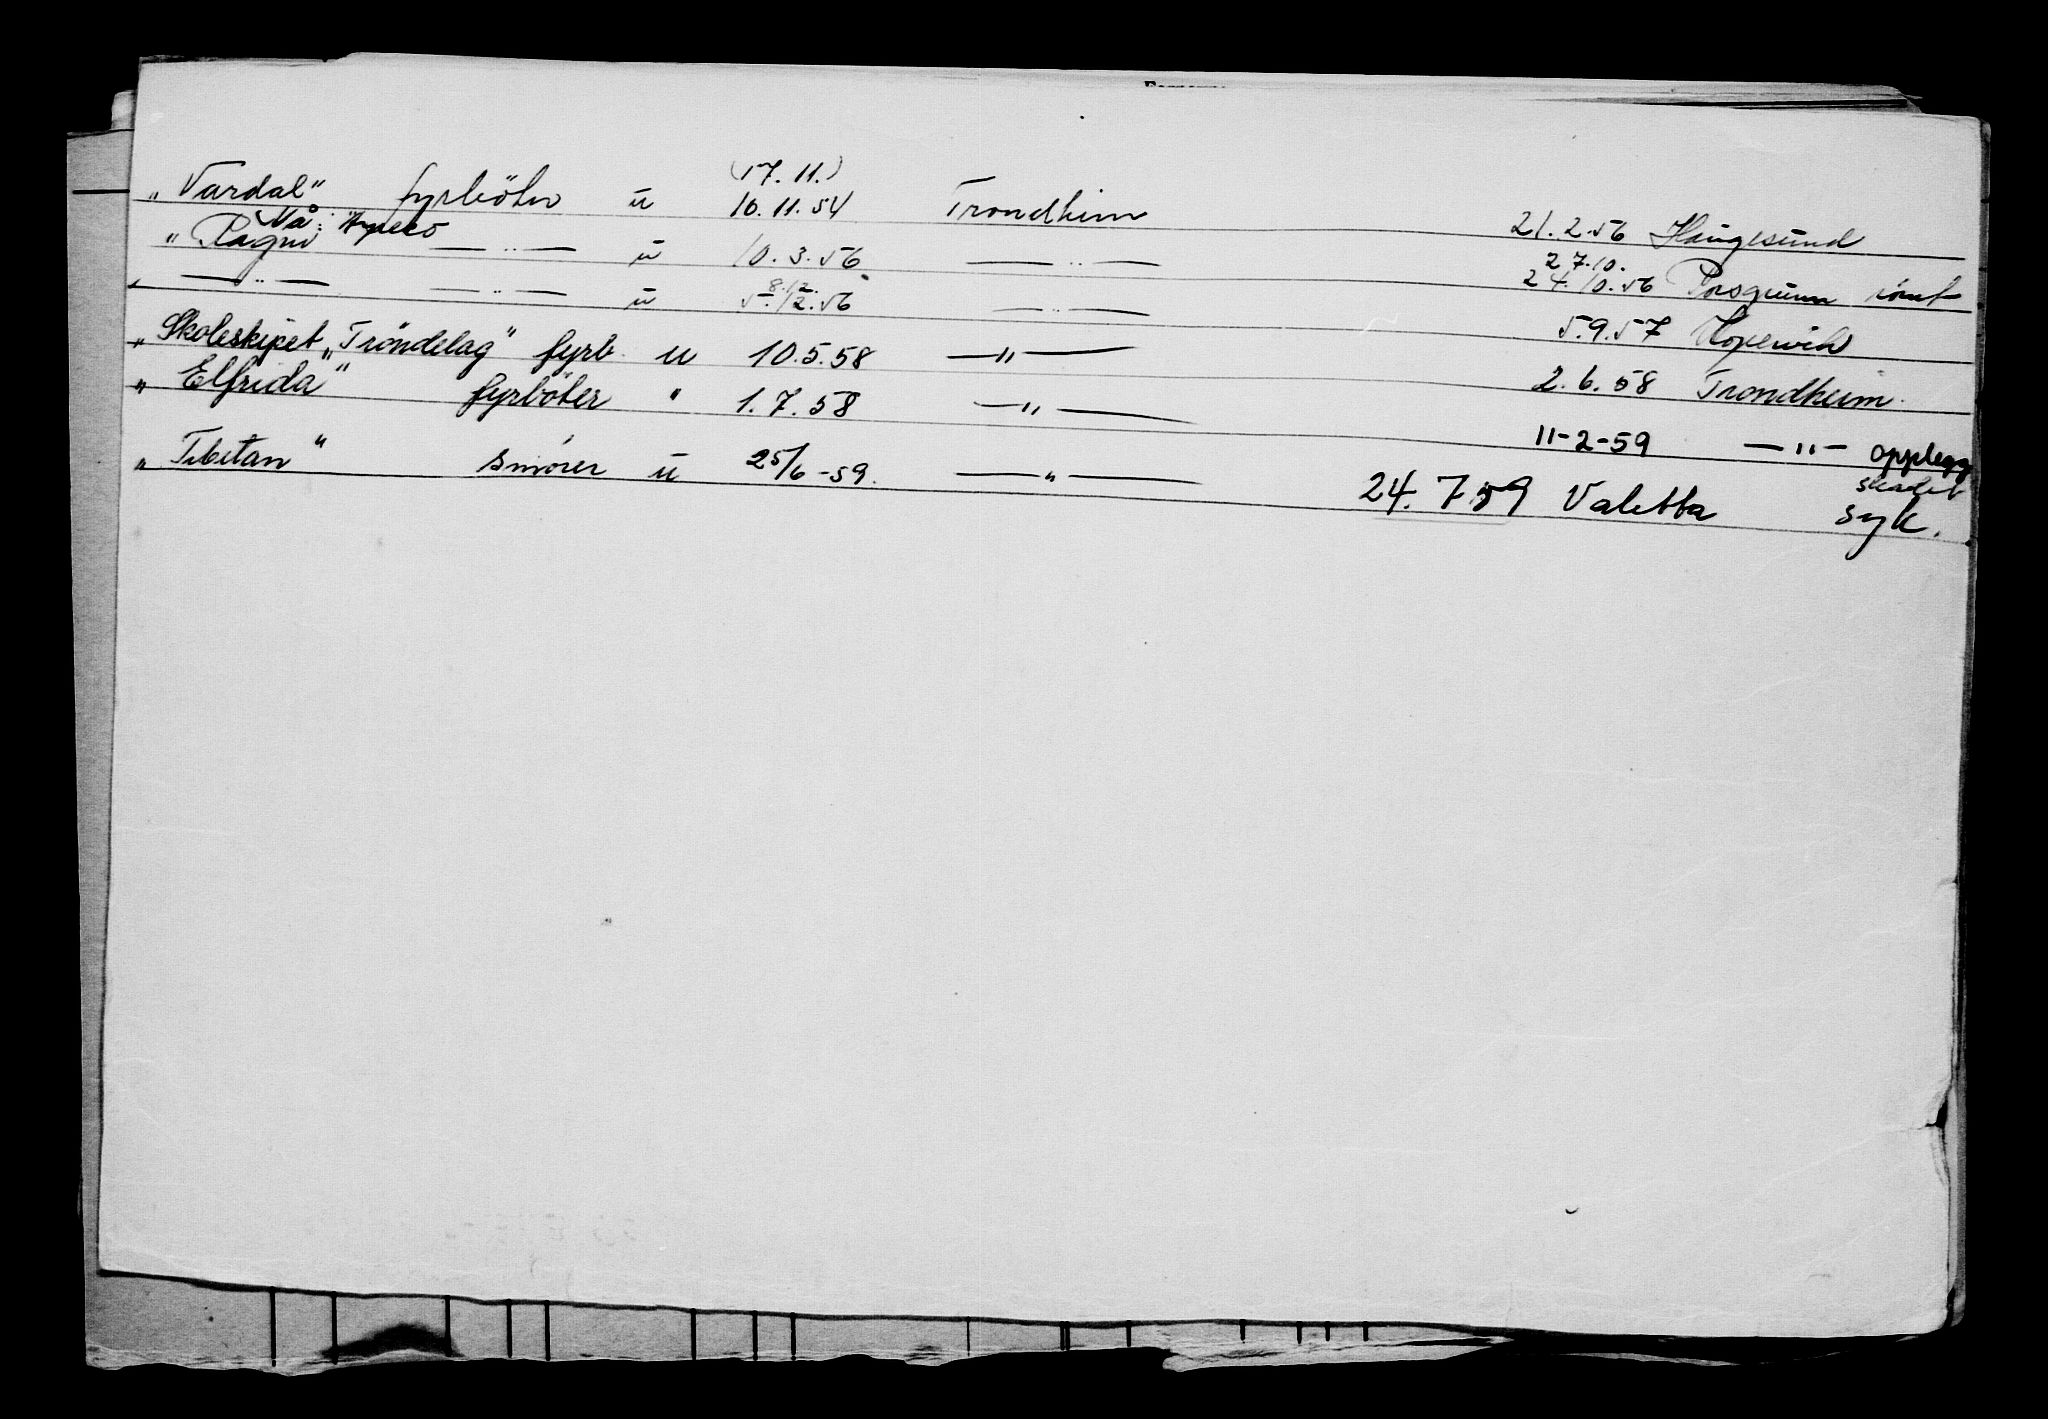 (17.11.)
„Vardal" fyrböter u 16.11.54 Trondheim 21.2.56 Haugesund
Nå:
27.10.
„Ragni —"— u 10.3.56 —"— 24.10.56 Porsgrunn
8.12.
„ —"— —"— u 5.12.56 —"— 5.9.57 Kopervik
„Skoleskipet „Tröndelag" fyrb. u 10.5.58 —"— 2.6.58 Trondheim.
„Elfrida" fyrböter " 1.7.58 —"— 11-2-59 —"— opplegg
skadet
„Tibetan" smörer u 25/6-59. —"— 24.7.59 Valetta syk.